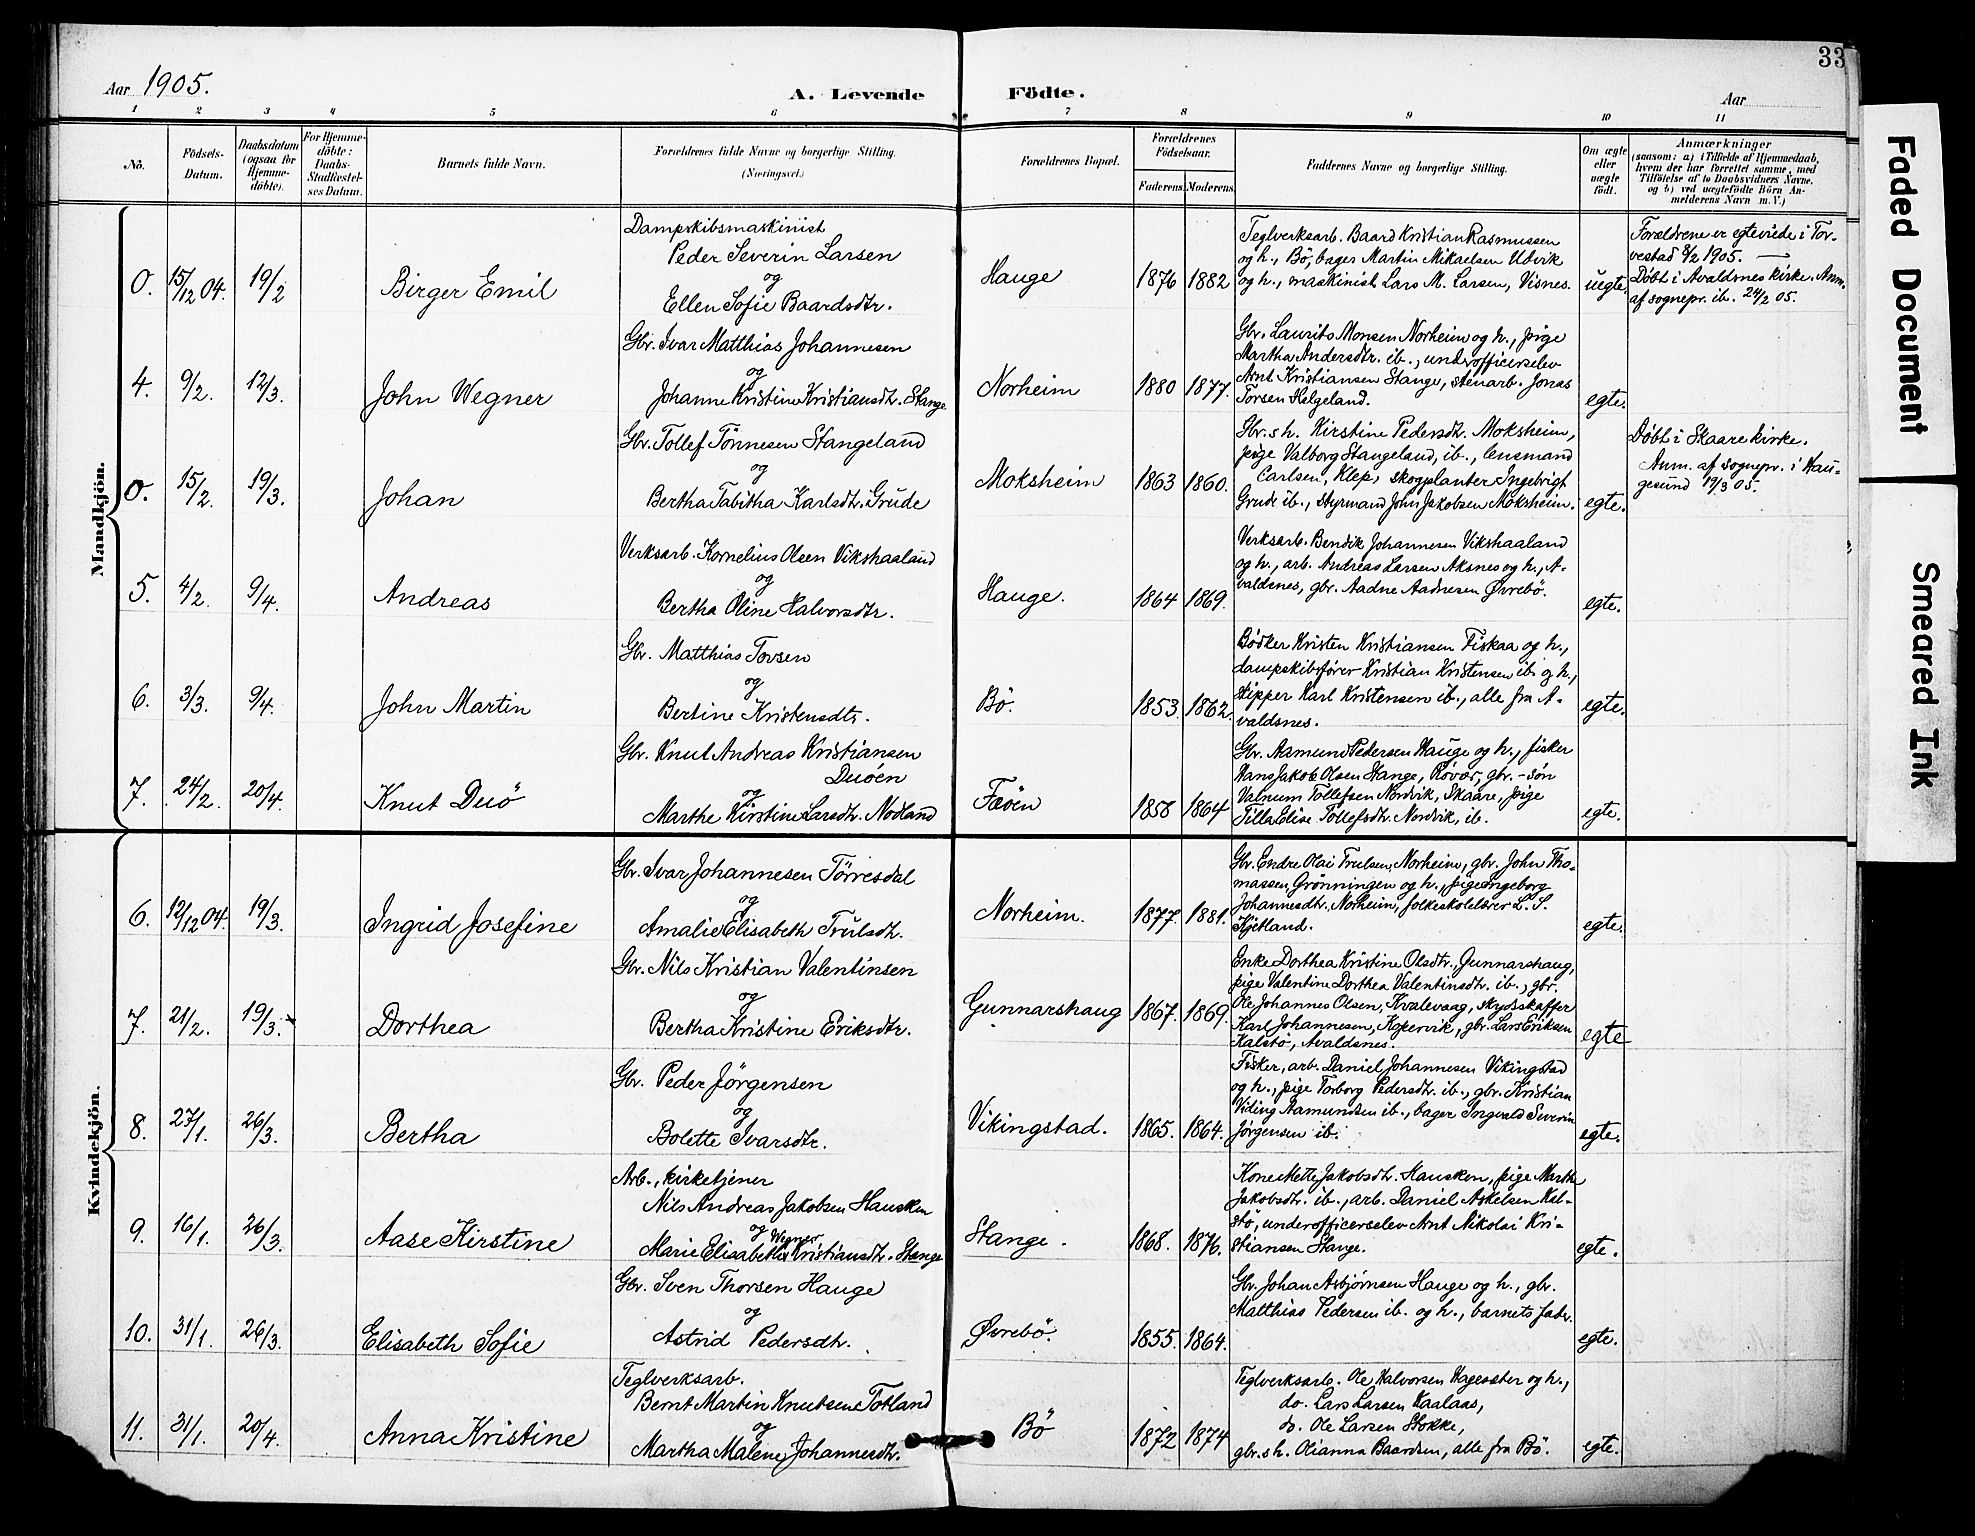 33
Aar 1905.
A. Levende Födte.
Aar
1 2 3 4 5 6 7 8 9 10 11
No.
Födsels-
Datum.
Daabsdatum
(ogsaa for
Hjemme-
döbte).
For Hjemme-
döbte:
Daabs-
Stadfæstel-
ses Datum.
Barnets fulde Navn.
Forældrenes fulde Navne og borgerlige Stilling.
(Næringsvei.)
Forældrenes Bopæl.
Forældrenes
Födselsaar.
Faderens. Moderens.
Faddernes Navne og borgerlige Stilling.
Om ægte
eller
uægte
födt.
Anmærkninger
(saasom: a) i Tilfælde af Hjemmedaab,
hvem der har forrettet samme, med
Tilföielse af to Daabsvidners Navne,
og b) ved uægtefödte Börn An-
melderens Navn m. V.)
Mandkjön.
0. 15/12 04. 19/2 Birger Emil
Dampskibsmaskinist
Peder Severin Larsen
og
Ellen Sofie Baardsdtr.
Hauge 1876 1882
Teglverksarb. Baard Kristian Rasmussen
og h., Bö, bager Martin Mikaelsen Utvik
og h., maskinist Lars M. Larsen, Visnes.
uegte.
Forældrene er egteviede i Tor-
vestad 8/2 1905. —
Döbt i Avaldsnes kirke. Anm.
af sognepr. ib. 24/2 05.
4. 9/2. 12/3. John Wegner
Gbr. Ivar Matthias Johannesen
og
Johanne Kristine Kristiansdtr. Stange
Norheim 1880 1877.
Gbr. Laurits Monsen Norheim og h., pige
Martha Andersdtr. ib., underofficerselev
Arnt Kristiansen Stange, stenarb. Jonas
Torsen Helgeland.
egte.
0. 15/2. 19/3. Johan
Gbr. Tollef Tönnesen Stangeland
og
Bertha Tabitha Karlsdtr. Grude
Moksheim 1863 1860.
Gbr.s h. Kirstine Pedersdtr. Moksheim,
pige Valborg Stangeland, ib., lensmand
Carlsen, Klep, skogplanter Ingebrigt
Grude ib., styrmand John Jakobsen Moksheim.
egte.
Döbt i Skaare kirke.
Anm. af sognepr. i Hau-
gesund 19/3 05.
5. 4/2. 9/4. Andreas
Verksarb. Kornelius Olsen Vikshaaland
og
Bertha Oline Halvorsdtr.
Hauge. 1864 1869.
Verksarb. Bendik Johannesen Vikshaaland
og h., arb. Andreas Larsen Aksnes og h., A-
valdsnes, gbr. Aadne Aadnesen Øvrebö.
egte.
6. 3/3. 9/4. John Martin
Gbr. Matthias Torsen
og
Bertine Kristensdtr.
Bö. 1853. 1862.
Bödker Kristen Kristiansen Fiskaa og h.,
dampskibsförer Kristian Kristensen ib. og h.,
skipper Karl Kristensen ib., alle fra A-
valdsnes.
egte.
7. 24/2. 20/4. Knut Duö
Gbr. Knut Andreas Kristiansen
Duöen
og
Marthe Kirstine Larsdtr. Nodland
Fæöen 1858 1864
Gbr. Aamund Pedersen Hauge og h., fisker
Hans Jakob Olsen Hange, Rövær, gbr.-sön
Valnum Tollefsen Nordvik, Skaare, pige
Tilla Elise Tollefsdtr. Nordvik, ib.
egte.
Kvindekjön.
6. 12/12 04. 19/3. Ingrid Josefine
Gbr. Ivar Johannesen Törresdal
og
Amalie Elisabeth Trulsdtr.
Norheim. 1877. 1881.
Gbr. Endre Olai Trulsen, Norheim, gbr. John Tho-
massen Grönningen og h., pige Ingeborg
Johannesdtr. Norheim, folkeskolelærer L. S.
Kjetland.
egte.
7. 21/2. 19/3. Dorthea
Gbr. Nils Kristian Valentinsen
og
Bertha Kristine Eriksdtr.
Gunnarshaug 1867. 1869.
Enke Dorthea Kristine Olsdtr., Gunnarshaug,
pige Valentine Dorthea Valentinsdtr. ib., gbr.
Ole Johannes Olsen, Kvalevaag, skydsskaffer
Karl Johannesen, Kopervik, gbr. Lars Eriksen
Kalstö, Avaldsnes.
egte
8. 27/1. 26/3. Bertha
Gbr. Peder Jörgensen
og
Bolette Ivarsdtr.
Vikingstad. 1865. 1864.
Fisker, arb. Daniel Johannesen Vikingstad
og h., pige Torborg Pedersdtr. ib., gbr. Kristian
Viding Aamundsen ib., bager Ingvald Severin
Jörgensen ib.
egte.
9. 16/1. 26/3. Aase Kirstine
Arb., kirketjener
Nils Andreas Jakobsen Hausken
og
Marie Elisabeth Wegner Kristiansdtr. Stange
Stange. 1868. 1876.
Kone Mette Jakobsdtr. Hausken, pige Martha
Jakobsdtr. ib., arb. Daniel Askelsen Kal-
stö, underofficerselev Arnt Nikolai Kri-
stiansen Stange.
egte.
10. 31/1. 26/3. Elisabeth Sofie
Gbr. Sven Thorsen Hauge
og
Astrid Pedersdtr.
Øvrebö. 1855. 1864.
Gbr. Johan Asbjörnsen Hauge og h., gbr.
Matthias Pedersen ib. og h., barnets fader.
egte.
11. 31/1. 20/4. Anna Kristine
Teglverksarb.
Bernt Martin Knutsen Totland
og
Martha Malene Johannesdtr.
Bö 1872 1874
Teglverksarb. Ole Halvorsen Hagesæter og h.,
do. Lars Larsen Haalaas,
do. Ole Larsen Stokke,
gbr.s h. Olianna Baardsen, alle fra Bö.
egte.
Faded Document
Smeared Ink